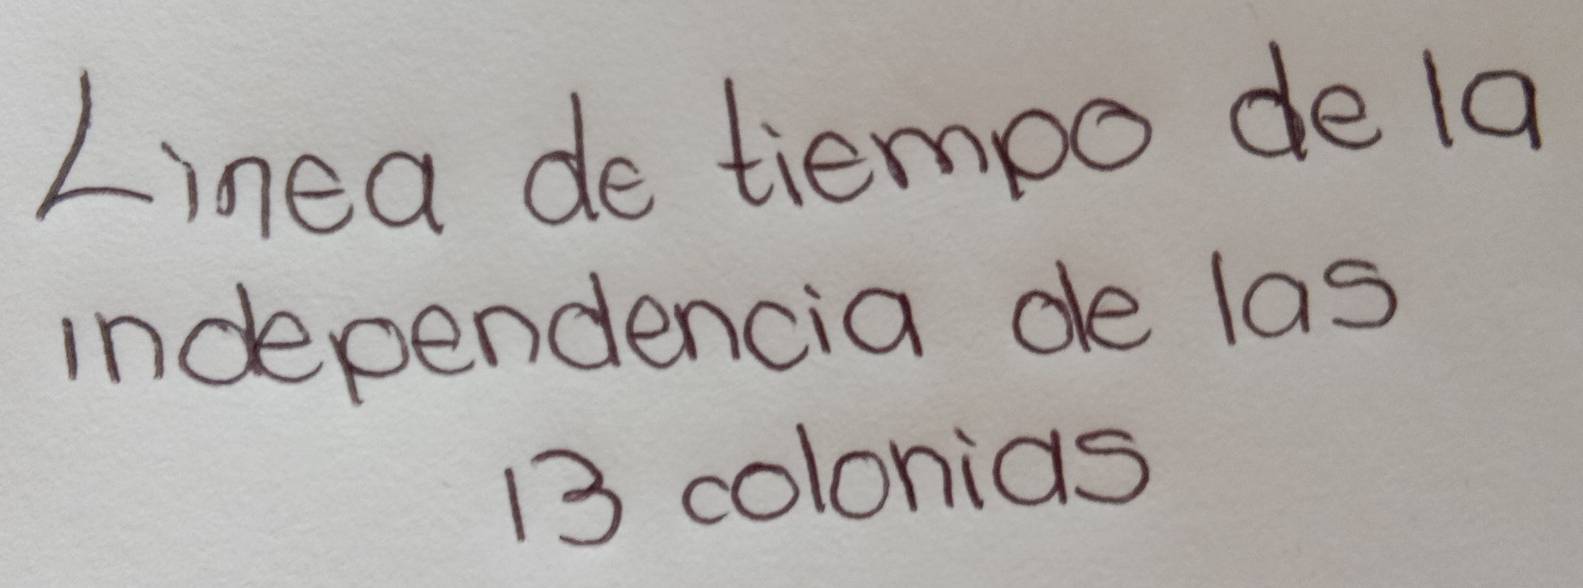 Linea de tiempo de la
independencia de las
13 colonias